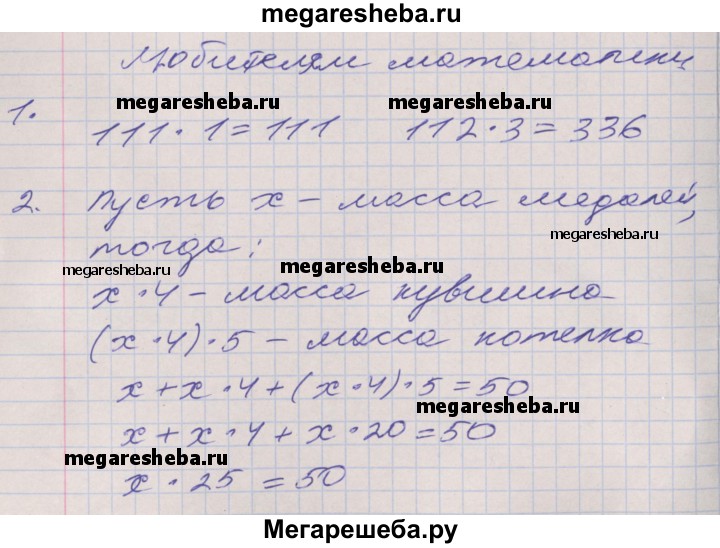 megaresheba.ru
Любителям математики
megaresheba.ru megaresheba.ru
1. 111 · 1 = 111 112 · 3 = 336
2. Пусть х – масса медалей,
megaresheba.ru
тогда:
megaresheba.ru megaresheba.ru
х · 4 – масса кувшина
(х · 4) · 5 – масса котелка
х + х · 4 + (х · 4) · 5 = 50
megaresheba.ru
х + х · 4 + х · 20 = 50
megaresheba.ru
х · 25 = 50
Мегарешеба.ру